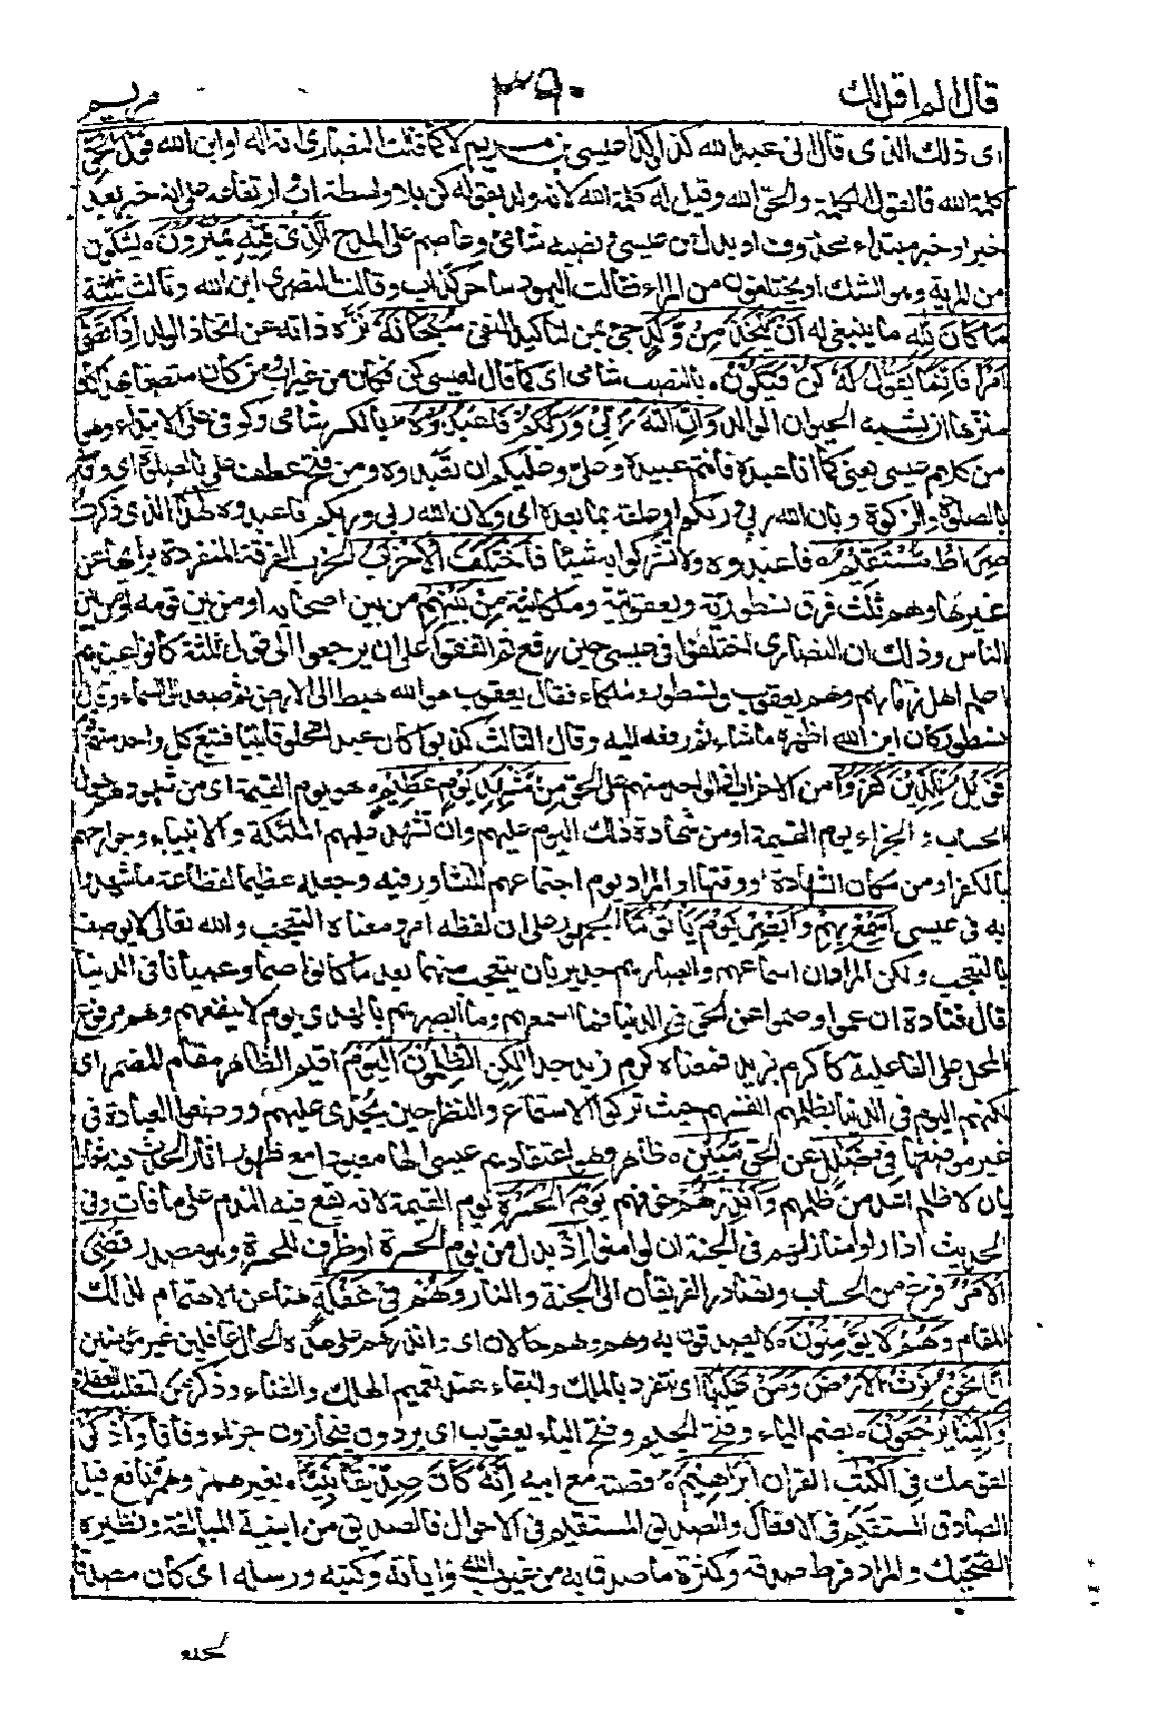 قال الم اقل لك ٣٩٠ مريم
اى ذلك الذى قال انى عبد الله كذا وكذا عيسى بن مريم لا كما قالت النصارى انه اله او ابن الله قول الحق
كلمة الله فالقول الكلمة والحق الله وقيل له كلمة الله لانه ولد بقوله كن بلا واسطة اب وارتفاعه على انه خبر بعد
خبر او خبر مبتداء محذوف او بدل من عيسى ونصبه شامى وعاصم على المدح الذى فيه يمترون ه يشكون
من المرية وهو الشك او يختلفون من المراء فقالت اليهود ساحر كذاب وقالت النصرى ابن الله وثالث ثلثة
ما كان لله ما ينبغى له ان يتخذ من ولد جئ بمن لتاكيد النفى سبحانه نزه ذاته عن اتخاذ الولد اذا قضى
امرا فانما يقول له كن فيكون ه بالنصب شامى اى كما قال لعيسى كن فكان من غير اب ومن كان متصفا بهذا كان
منزها ان يشبه الحيوان الوالد وان الله ربى وربكم فاعبدوه ط بالكسر شامى وكوفى على الابتداء وهو
من كلام عيسى يعنى كما انا عبده فانتم عبيده وعلى وعليكم ان نعبده ومن فتح عطف على بالصلوة اى واوصانى
بالصلوة والزكوة وبان الله ربى وربكم او علقه بما بعده اى ولان الله ربى وربكم فاعبدوه هذا الذى ذكرت
صراط مستقيم ه فاعبدوه ولا تشركوا به شيئا فاختلف الاحزاب الحزب الفرقة المنفردة برايها عن
غيرها وهم ثلث فرق نسطورية ويعقوبية وملكانية من بينهم من بين اصحابه او من بين قومه او من بين
الناس وذلك ان النصارى اختلفوا فى عيسى حين رفع ثم اتفقوا على ان يرجعوا الى قول ثلثة كانوا عندهم
اعلم اهل زمانهم وهم يعقوب ونسطور وملكاء فقال يعقوب هو الله هبط الى الارض ثم صعد الى السماء وقال
نسطور كان ابن الله اظهره ما شاء ثم رفعه اليه وقال الثالث كذبوا كان عبدا مخلوقا نبيا فتبع كل واحد منهم قوم
فويل للذين كفروا من الاحزاب اذ الواحد منهم على الحق من مشهد يوم عظيم ه هو يوم القيمة اى من شهودهم هول
الحساب والجزاء يوم القيمة او من شهادة ذلك اليوم عليهم وان تشهد عليهم الملئكة والانبياء وجوارحهم
بالكفر او من مكان الشهادة او وقتها او المراد يوم اجتماعهم للتشاور فيه وجعله عظيما لفظاعة ما شهدوا
به فى عيسى اسمع بهم وابصر يوم ياتوننا الجمهور على ان لفظه امر ومعناه التعجب والله تعالى لا يوصف
بالتعجب ولكن المراد ان اسماعهم وابصارهم جدير بان يتعجب منهما بعد ما كانوا صما وعميانا فى الدنيا
قال قتادة ان عموا وصموا عن الحق فى الدنيا فما اسمعهم وما ابصرهم بالهدى يوم لا ينفعهم وهم مرفوع
المحل على الفاعلية كاكرم بزيد فمعناه كرم زيد جدا لكن الظلمون اليوم اقيم الظاهر مقام المضمر اى
لكنهم اليوم فى الدنيا بظلمهم انفسهم حيث تركوا الاستماع والنظر حين يجدى عليهم ووضعوا العبادة فى
غير موضعها فى ضلل عن الحق مبين ه ظاهر وهو اعتقادهم عيسى الها معبودا مع ظهور اثار الحدث فيه اشعارا
بان لا ظلم اشد من ظلمهم وانذرهم خوفهم يوم الحسرة يوم القيمة لانه يقع فيه الندم على ما فات وفى
الحديث اذا راوا منازلهم فى الجنة ان لو امنوا اذ بدل من يوم الحسرة او ظرف للحسرة وهو مصدر قضى
الامر فرغ من الحساب وتصادر الفريقان الى الجنة والنار وهم فى غفلة هنا عن الاهتمام لذلك
المقام وهم لا يؤمنون ه لا يصدقون به وهم وهم حالان اى وانذرهم على هذه الحال غافلين غير مؤمنين
انا نحن نرث الارض ومن عليها اى نتفرد بالملك والبقاء عند تعميم الهلك والفناء وذكر من لتغليب العقلاء
والينا يرجعون ه بضم الياء وفتح الجيم وفتح الياء يعقوب اى يردون فيجازون جزاء وفاقا واذكر
لقومك فى الكتب القران ابرهيم ه قصته مع ابيه انه كان صديقا نبيا ه بغير همز وهمزه نافع قيل
الصادق المستقيم فى الافعال والصديق المستقيم فى الاحوال فالصديق من ابنية المبالغة ونظيره
الضحيك والمراد فرط صدقه وكثرة ما صدق به من غيوب الله واياته وكتبه ورسله اى كان مصدقا